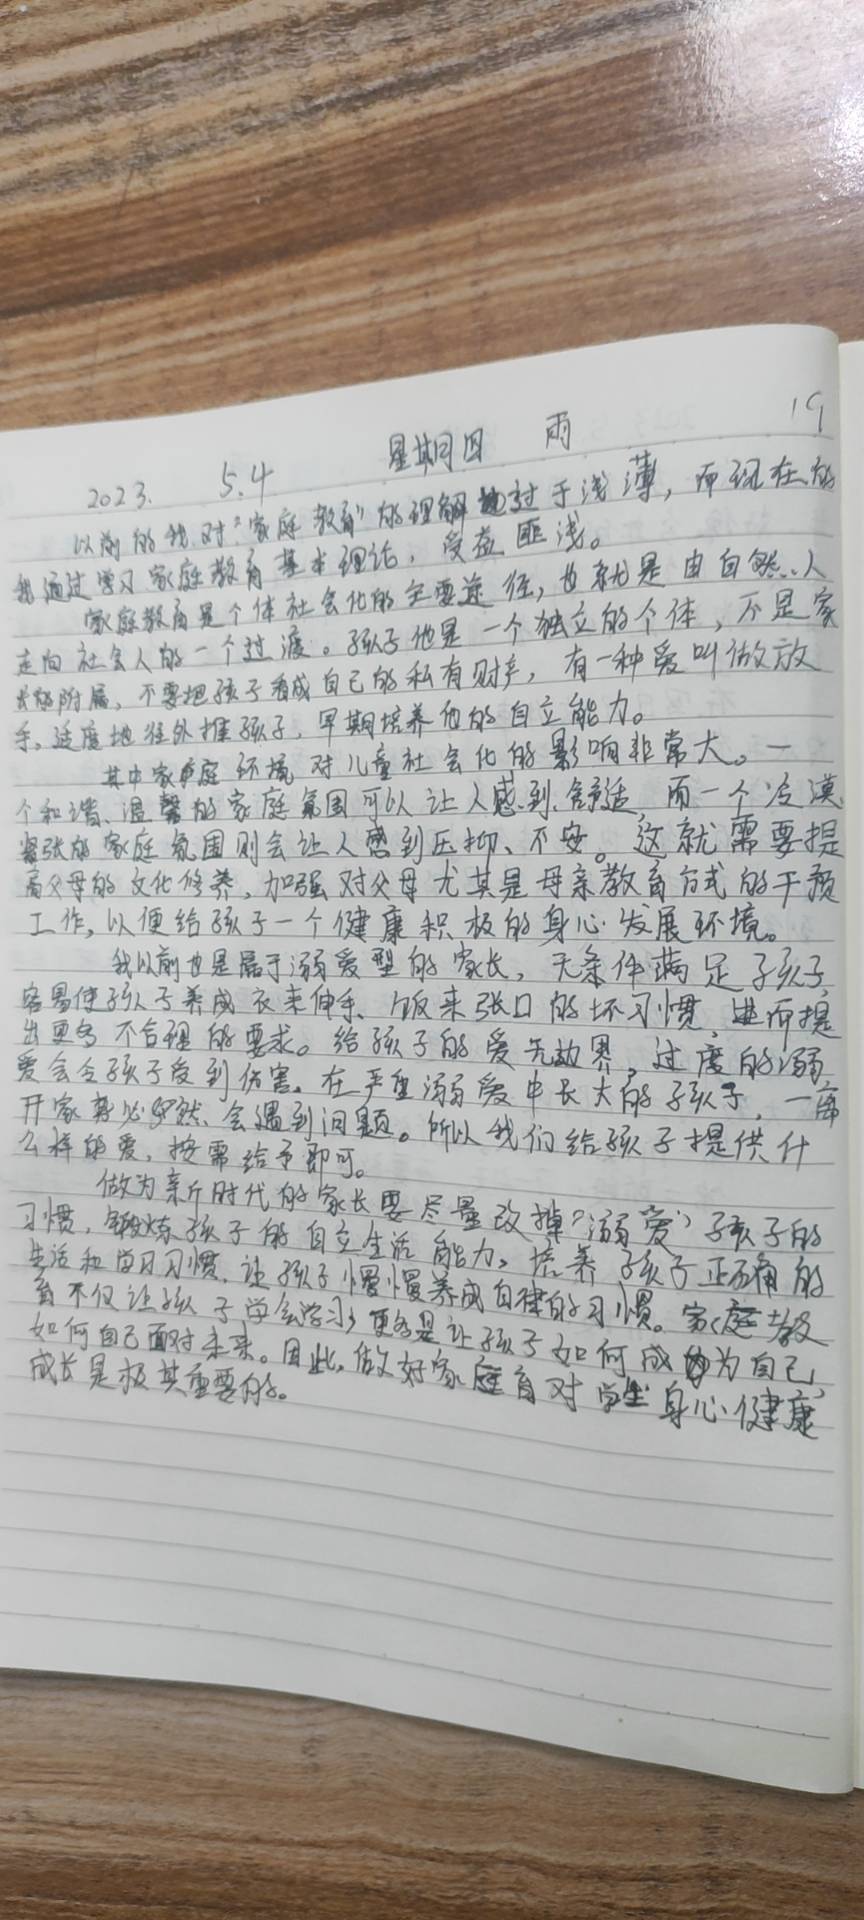 19
2023. 5.4 星期四 雨
以前的我对“家庭教育”的理解过于浅薄，而现在的
我通过学习家庭教育基本理论，受益匪浅。
家庭教育是个体社会化的主要途径，也就是由自然人
走向社会人的一个过渡。孩子他是一个独立的个体，不是家
长的附属，不要把孩子看成自己的私有财产，有一种爱叫做放
手，适度地往外推孩子，早期培养他的自立能力。
其中家庭环境对儿童社会化的影响非常大。一
个和谐、温馨的家庭氛围可以让人感到舒适，而一个冷漠、
紧张的家庭氛围则会让人感到压抑、不安。这就需要提
高父母的文化修养，加强对父母尤其是母亲教育方式的干预
工作，以便给孩子一个健康积极的身心发展环境。
我以前也是属于溺爱型的家长，无条件满足孩子，
容易使孩子养成衣来伸手、饭来张口的坏习惯，进而提
出更多不合理的要求。给孩子的爱无边界，过度的溺
爱会令孩子受到伤害。在严重溺爱中长大的孩子，一离
开家势必必然会遇到问题。所以我们给孩子提供什
么样的爱，按需给予即可。
做为新时代的家长要尽量改掉“溺爱”孩子的
习惯，锻炼孩子的自立生活能力。培养孩子正确的
生活和学习习惯，让孩子慢慢养成自律的习惯。家庭教
育不仅让孩子学会学习，更多是让孩子如何成为自己，
如何自己面对未来。因此，做好家庭育对学生身心健康
成长是极其重要的。